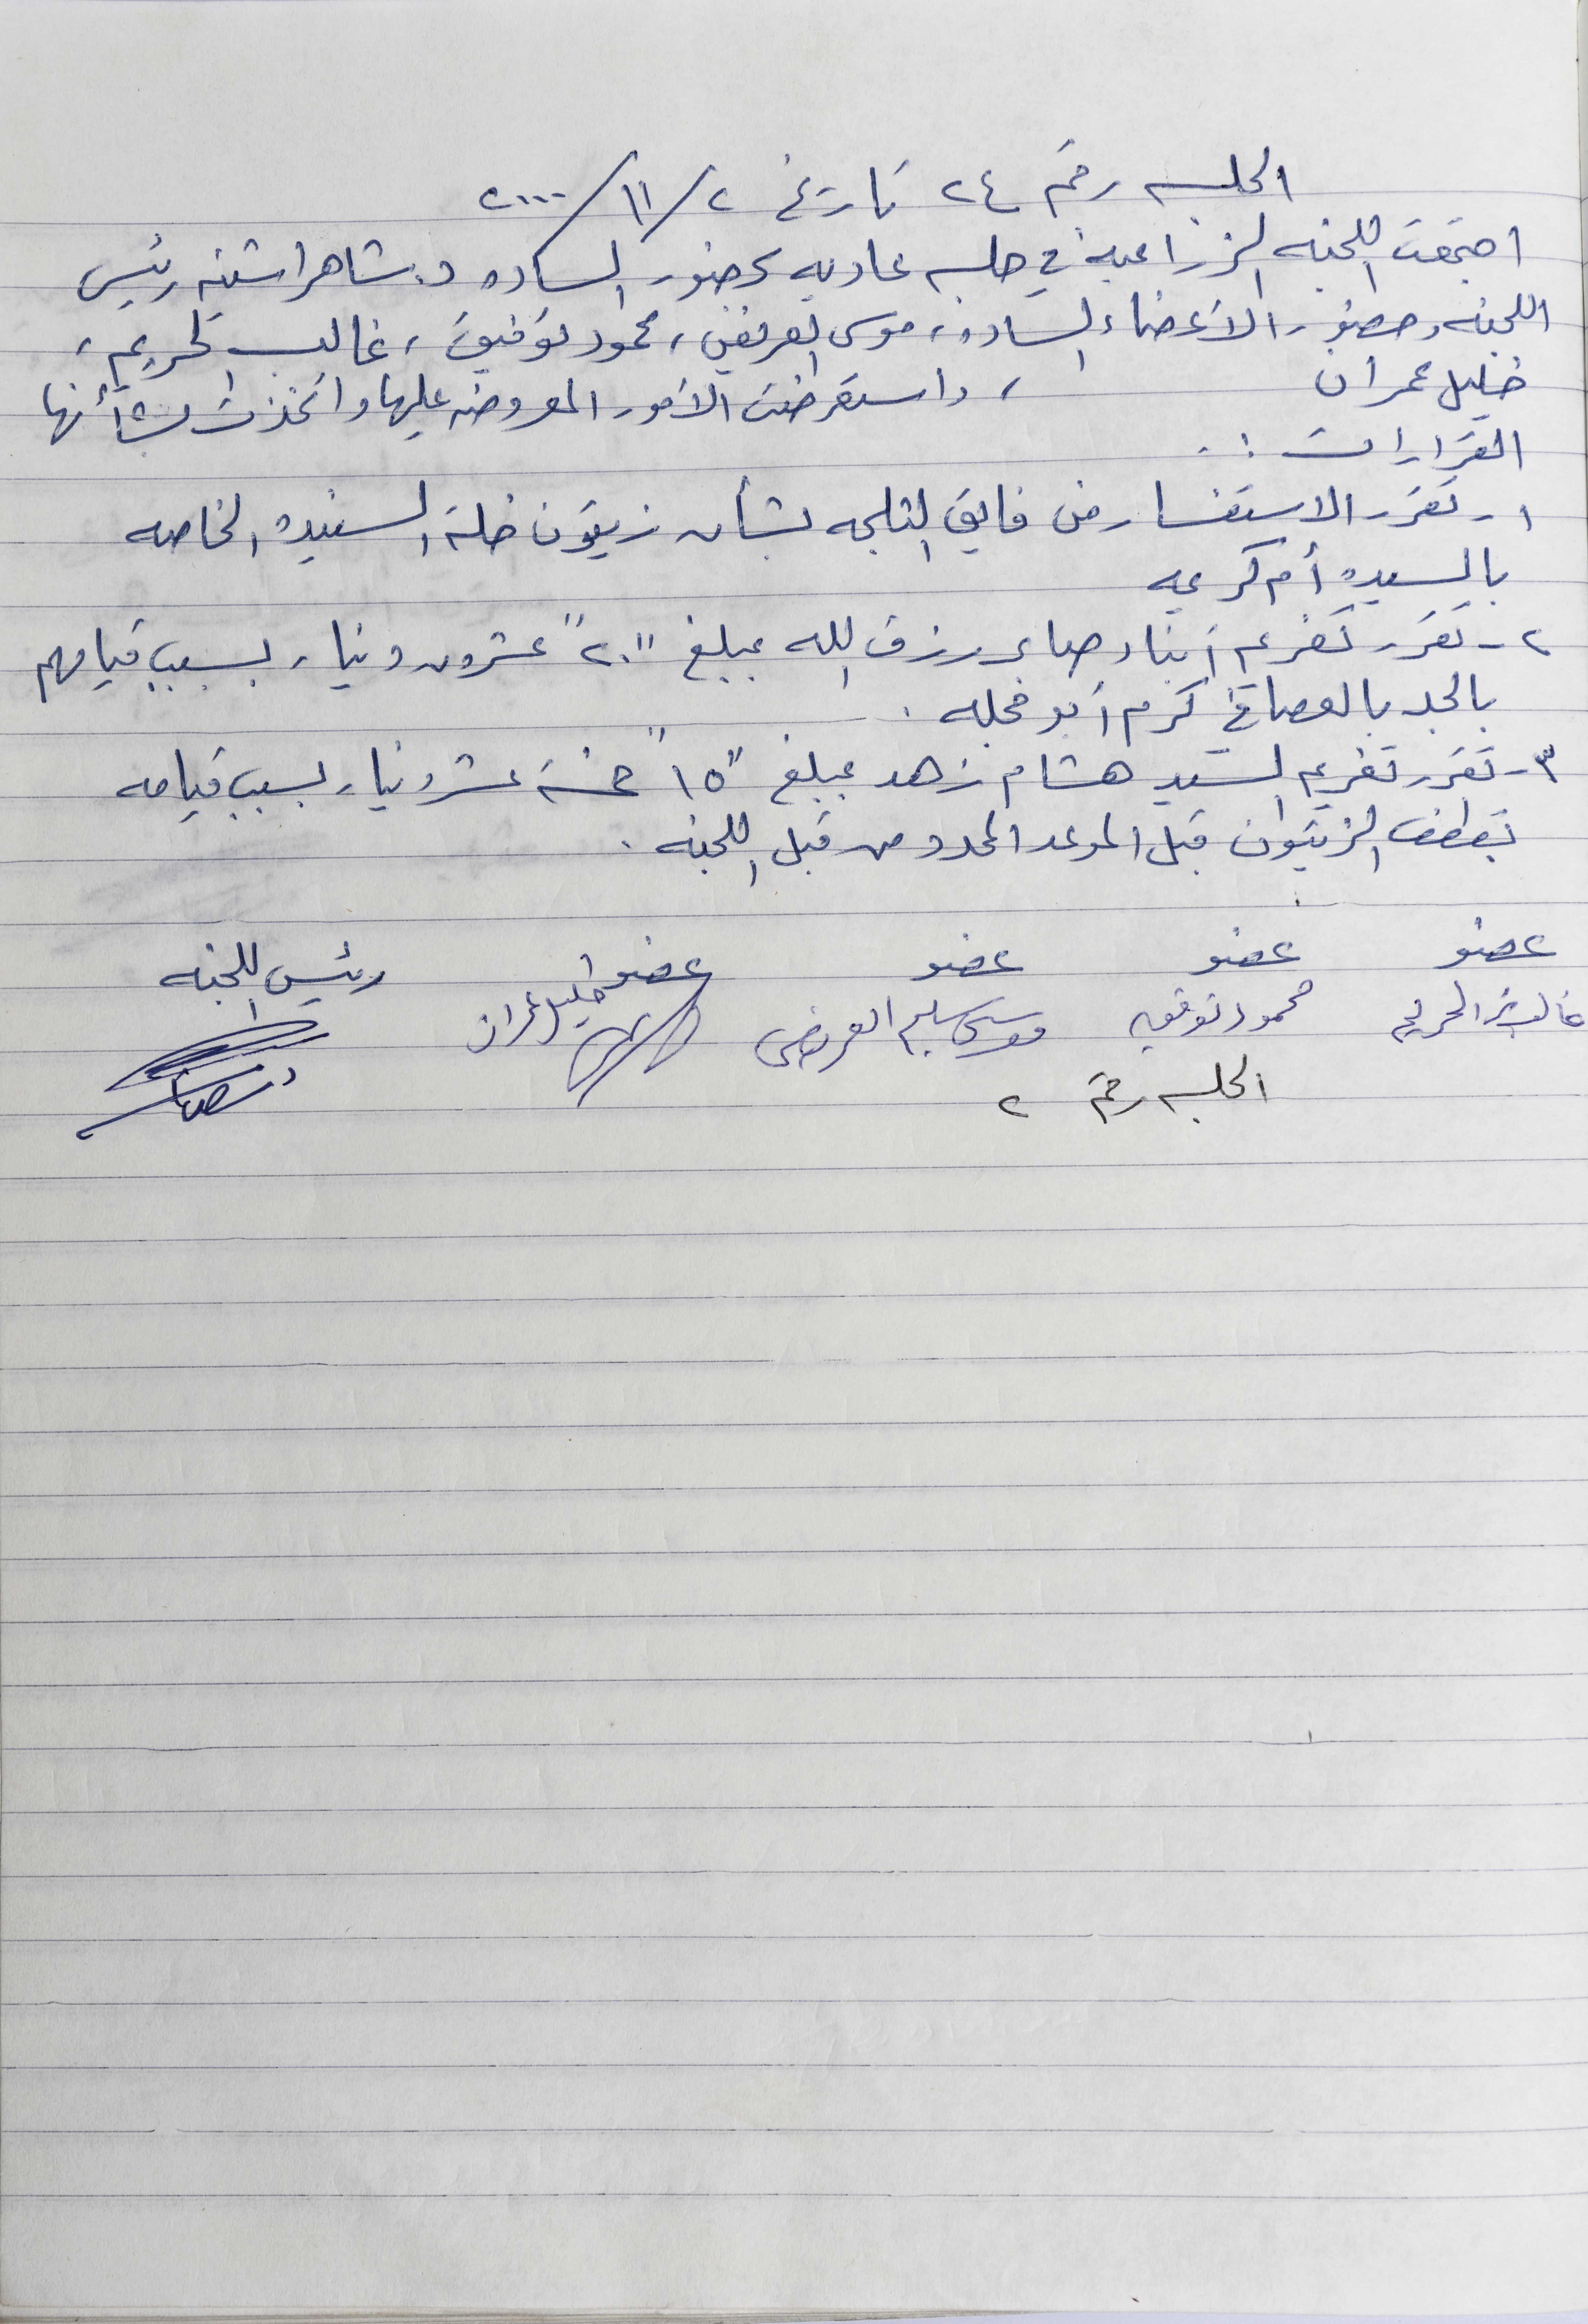 الجلسه رقم ٢٤ تاريخ ٢/١١/٢٠٠٠
اجتمعت اللجنه الزراعية في جلسه عاديه بحضور الساده د. شاهر اشتيه رئيس
اللجنه وحضور الأعضاء الساده، موسى العريض، محمود توفيق، غالب الحريم،
خليل عمران ، واستعرضت الأمور المعروضه عليها واتخذت بشأنها
القرارات :.
١- تقرر الاستفسار من فايق الثلجه بشأن زيتون خلة السنيده الخاصه
بالسيده أم كريم
٢- تقرر تغريم أبناء صابر رزق الله بمبلغ "٢٠" عشرون دينار بسبب قيامهم
بالجد بالعصا في كرم أبو فجله .
٣- تقرر تغريم السيد هشام زهد بمبلغ "١٥" خمسة عشر دينار بسبب قيامه
بقطف الزيتون قبل الموعد المحدد من قبل اللجنه .
عضو عضو عضو عضو رئيس اللجنه
غالب الحريم محمود توفيق موسى سليم العريض خليل عمران
الجلسه رقم ٢